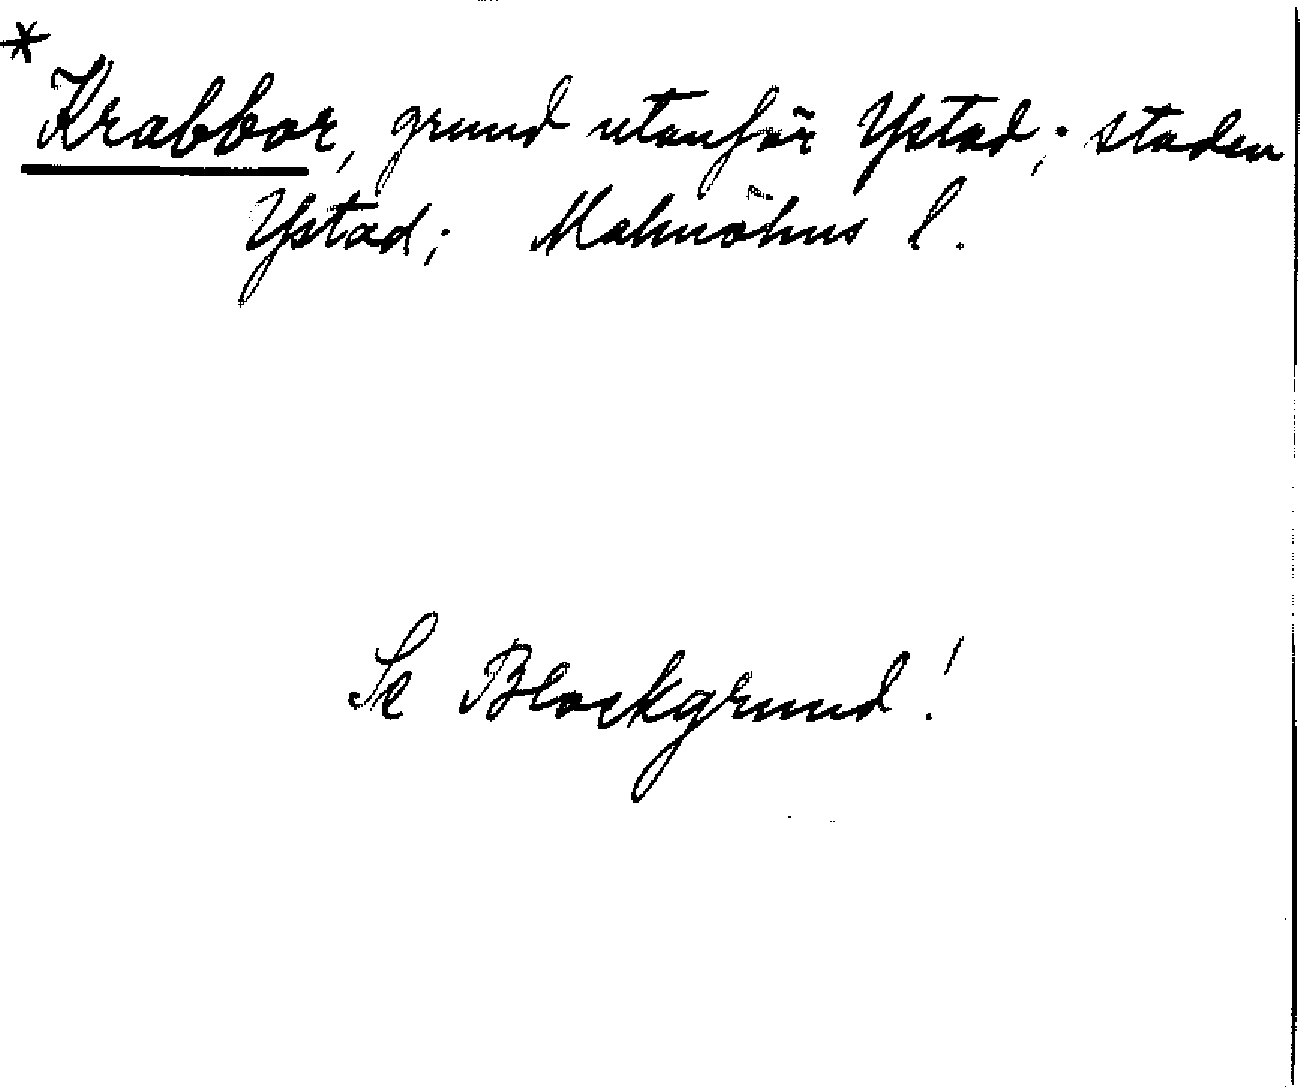 * Krabbor, grund utanför Ystad; staden
Ystad; Malmöhus l.
Se Blockgrund!